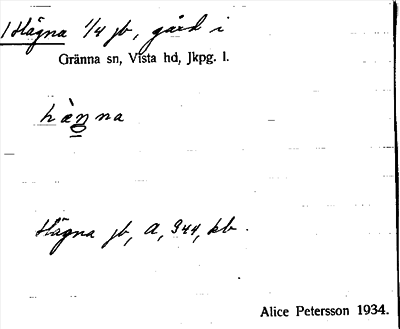 /Hägna 1/4 jb, gård i
Gränna sn, Vista hd, Jkpg. l.
hæ̀n̥na
Hägna jb, A, 944, kb.
Alice Petersson 1934.